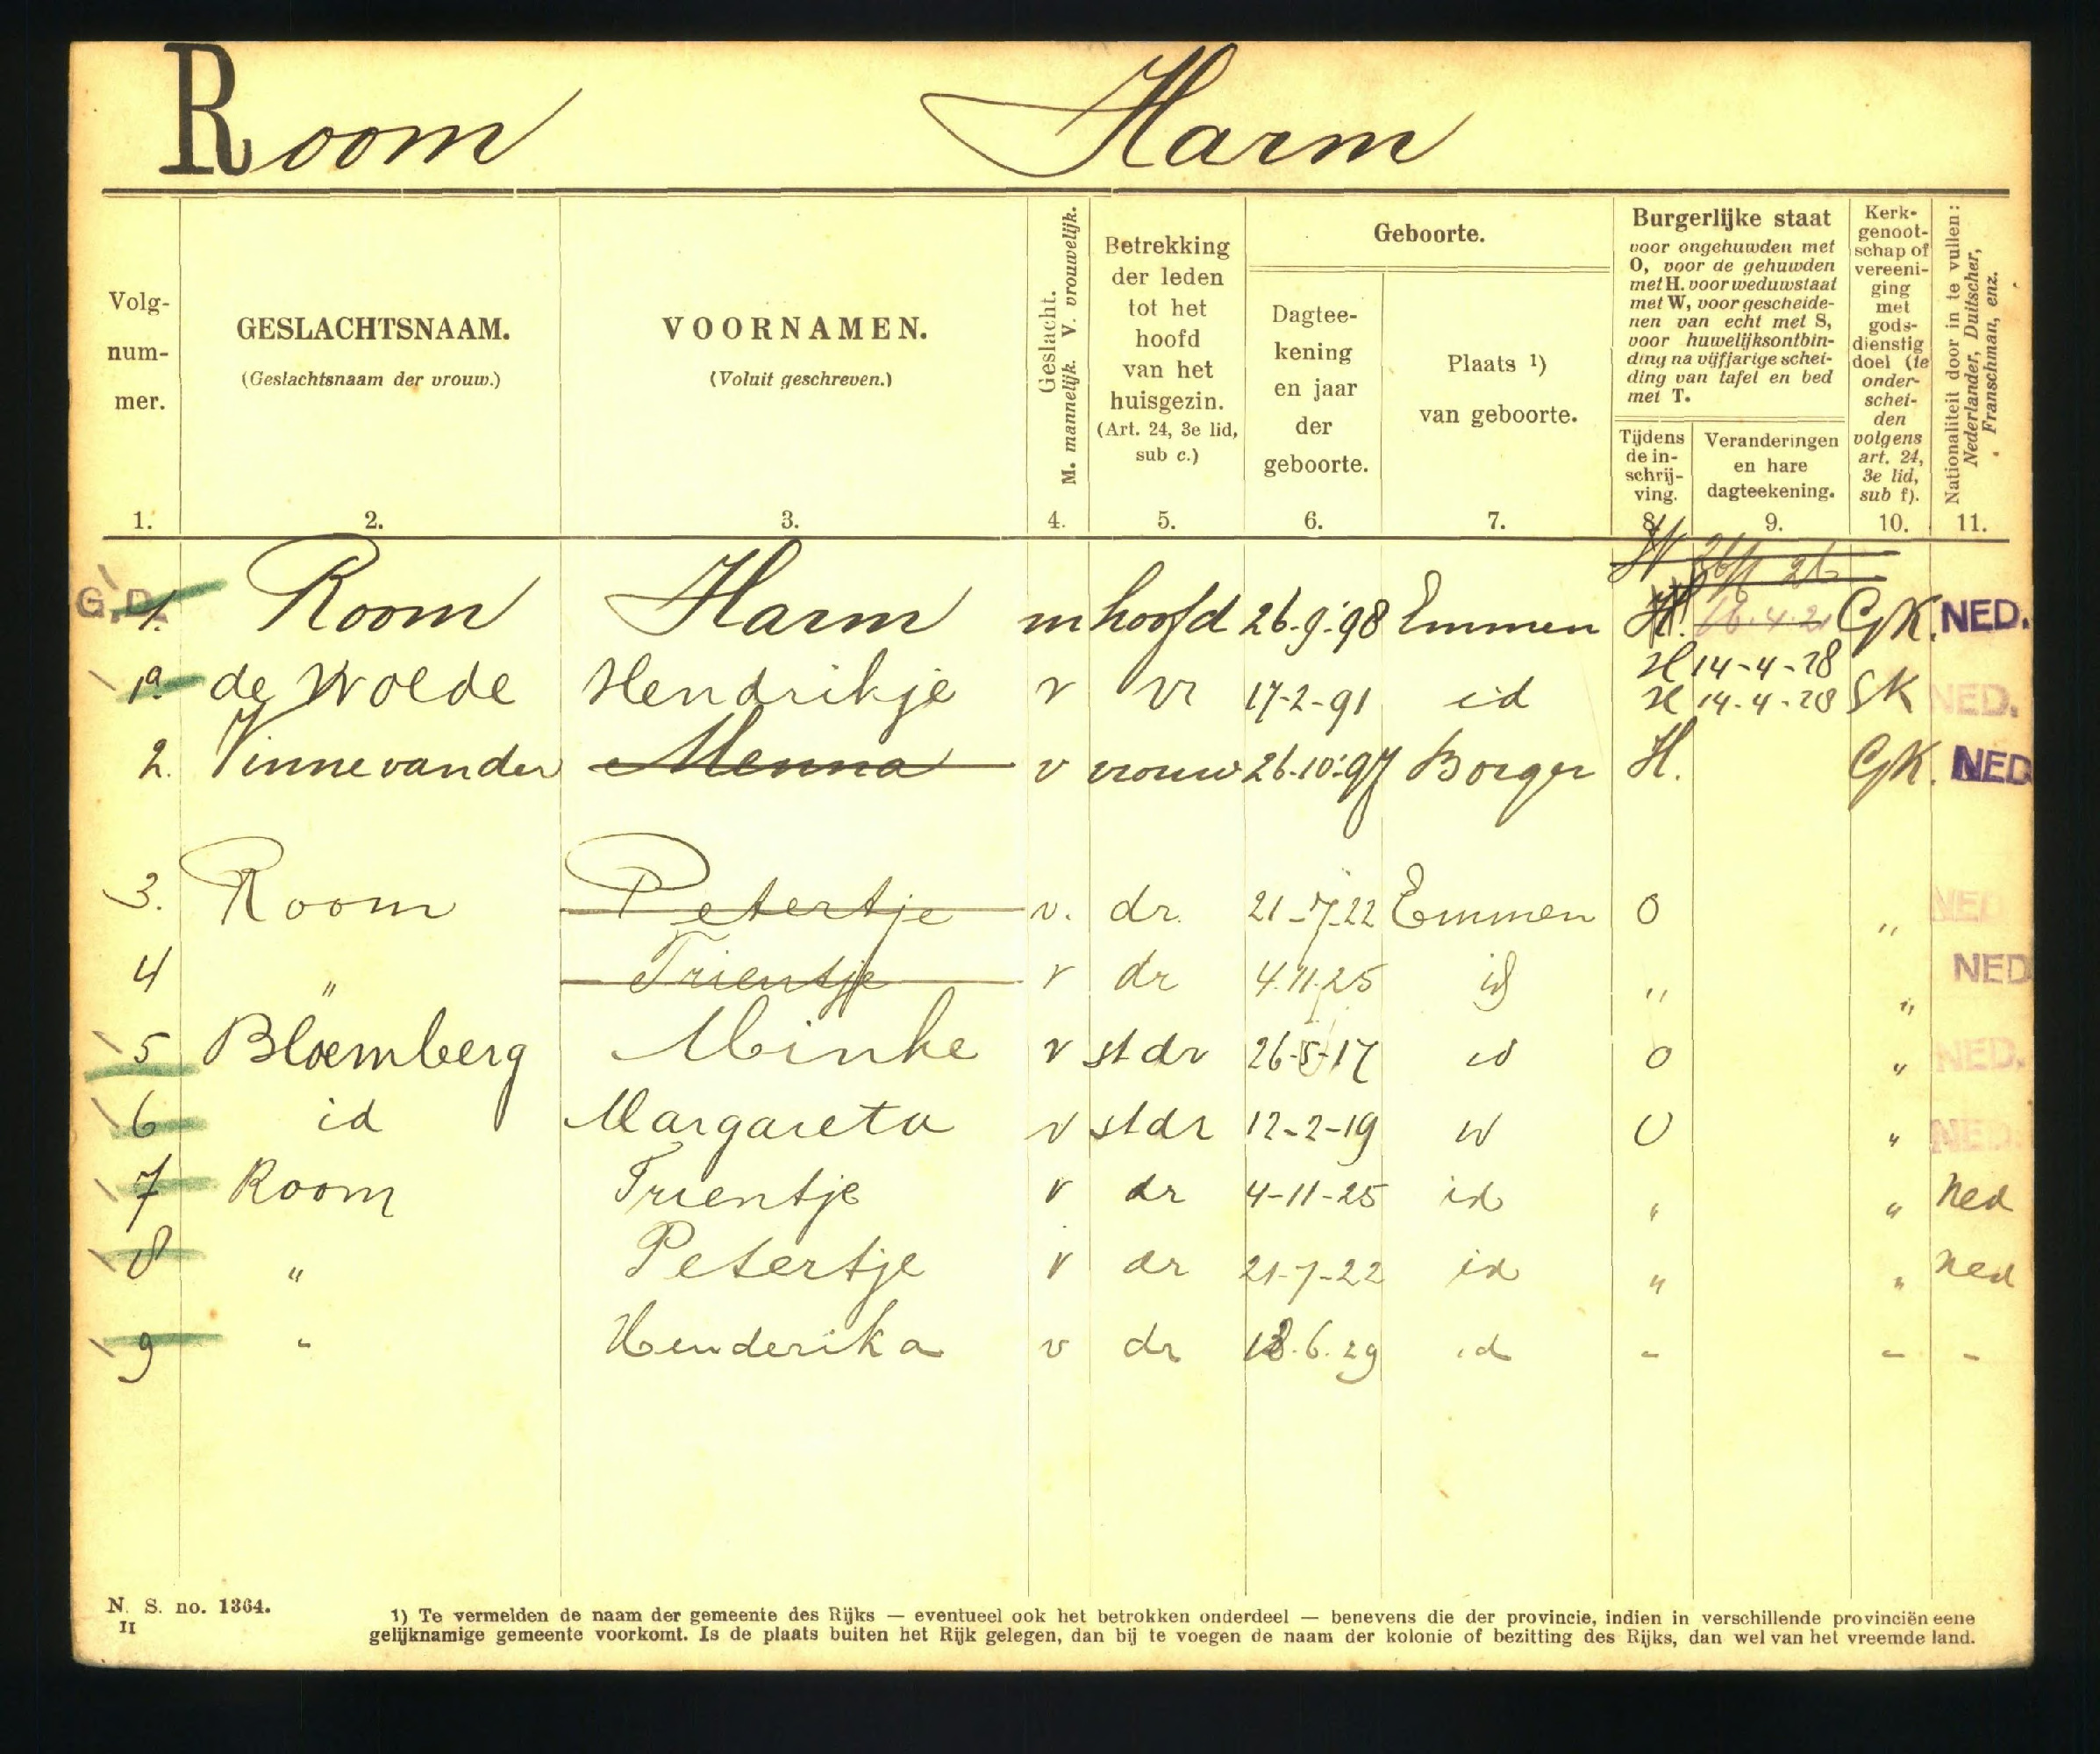 Room Harm
Volg-
num-
mer.
1.
GESLACHTSNAAM.
(Geslachtsnaam der vrouw.)
2.
VOORNAMEN.
(Voluit geschreven.)
3.
Geslacht.
M. mannelijk. V. vrouwelijk.
4.
Betrekking
der leden
tot het
hoofd
van het
huisgezin.
(Art. 24, 3e lid,
sub c.)
5.
Geboorte.
Dagtee-
kening
en jaar
der
geboorte.
6.
Plaats 1)
van geboorte.
7.
Burgerlijke staat
voor ongehuwden met
O, voor de gehuwden
met H. voor weduwstaat
met W, voor gescheide-
nen van echt met S,
voor huwelijksontbin-
ding na vijfjarige schei-
ding van tafel en bed
met T.
Tijdens
de in-
schrij-
ving.
8.
Veranderingen
en hare
dagteekening.
9.
Kerk-
genoot-
schap of
vereeni-
ging
met
gods-
dienstig
doel (te
onder-
schei-
den
volgens
art. 24,
3e lid,
sub f).
10.
Nationaliteit door in te vullen:
Nederlander, Duitscher,
Franschman, enz.
11.
G.D.
1. Room Harm m hoofd 26.9.'98 Emmen H. GK. NED.
H 14-4-28
1a. de Wolde Hendrikje v vr 17-2-91 id H 14-4-28 GK NED.
2. Vinne van der Menna v vrouw 26.10.'97 Borger H. GK. NED
3. Room Petertje v. dr. 21-7-22 Emmen O " NED
4 " Trientje v dr 4.11.25 id " " NED
5 Bloemberg Minke v st dr 26-5-17 id O " NED.
6 id Margareta v st dr 12-2-19 id O " NED.
7 Room Trientje v dr 4-11-25 id " " ned
8 " Petertje v dr 21-7-22 id " " ned
9 " Henderika v dr 6.29 id " " "
N. S. no. 1364.
II
1) Te vermelden de naam der gemeente des Rijks — eventueel ook het betrokken onderdeel — benevens die der provincie, indien in verschillende provinciën eene
gelijknamige gemeente voorkomt. Is de plaats buiten het Rijk gelegen, dan bij te voegen de naam der kolonie of bezitting des Rijks, dan wel van het vreemde land.